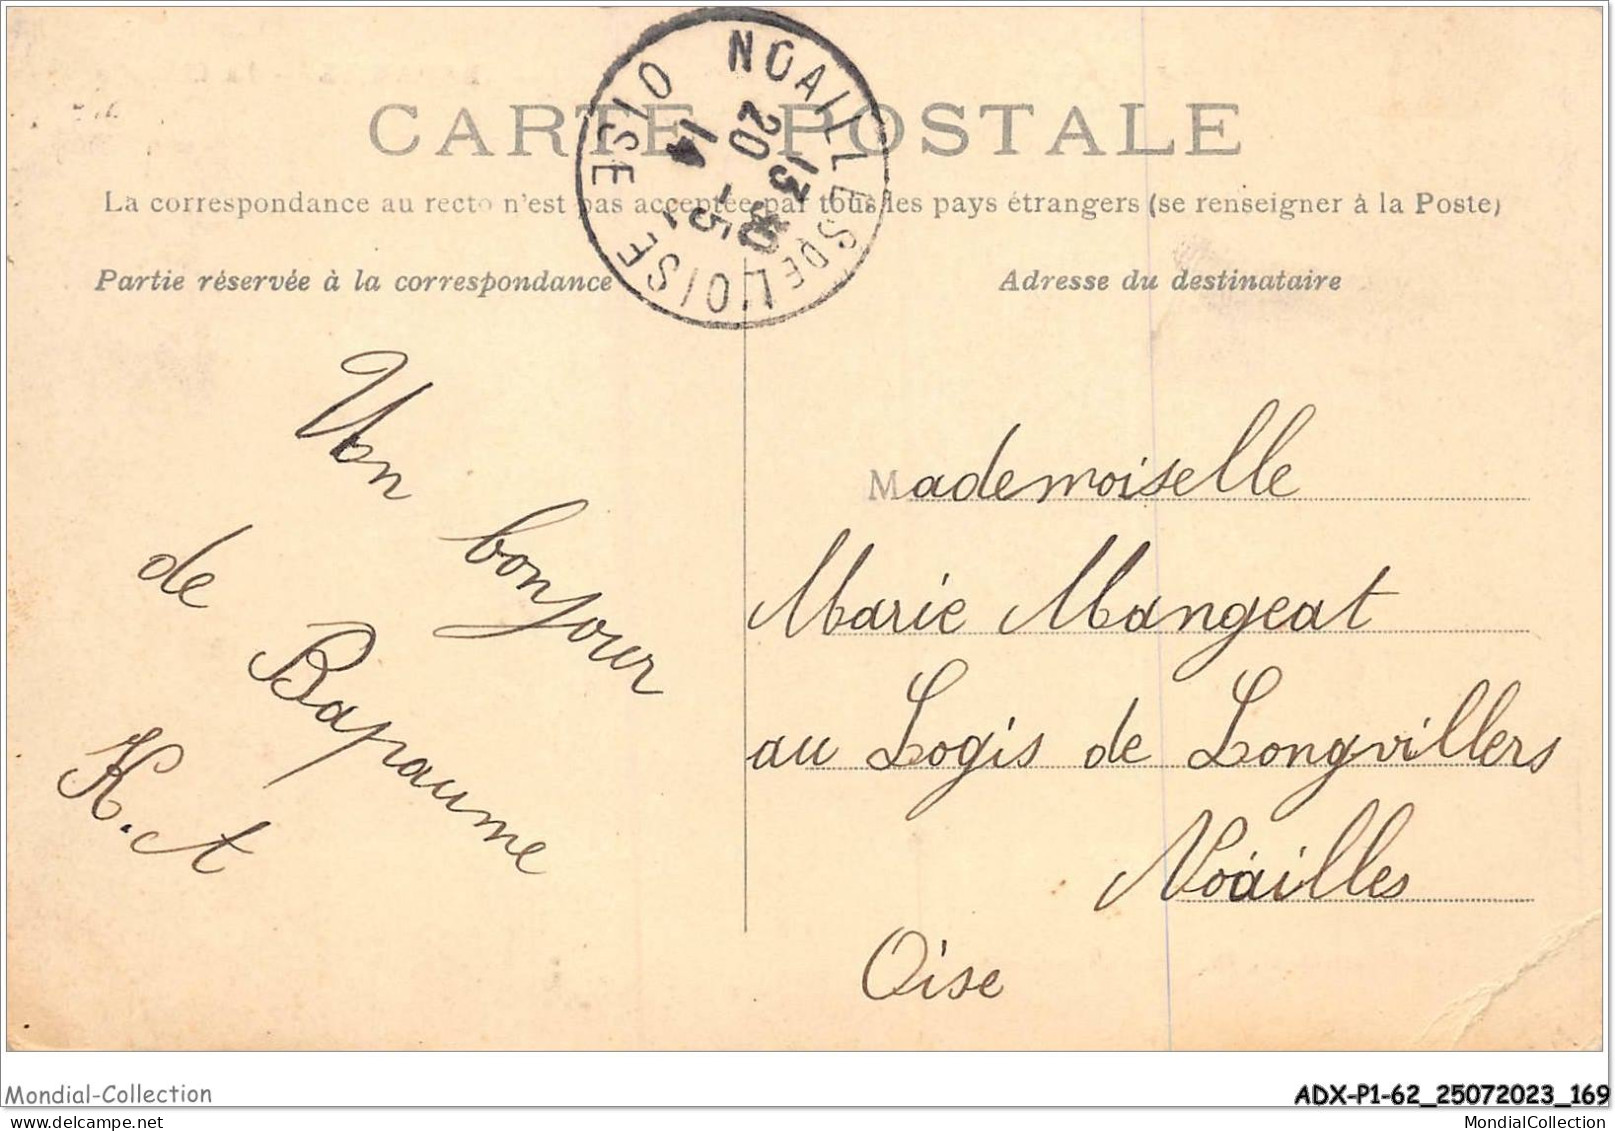 CARTE POSTALE
La correspondance au recto n'est pas acceptée par tous les pays étrangers (se renseigner à la Poste)
Partie réservée à la correspondance
Adresse du destinataire
NOAILLES DE L'OISE OISE
13 30
20 - 5
14
Un bonjour
de Bapaume
K. A
Mademoiselle
Marie Mangeat
au Logis de Longvillers
Noailles
Oise
Mondial-Collection
ADX-P1-62_25072023_169
delcampe.net
MondialCollection